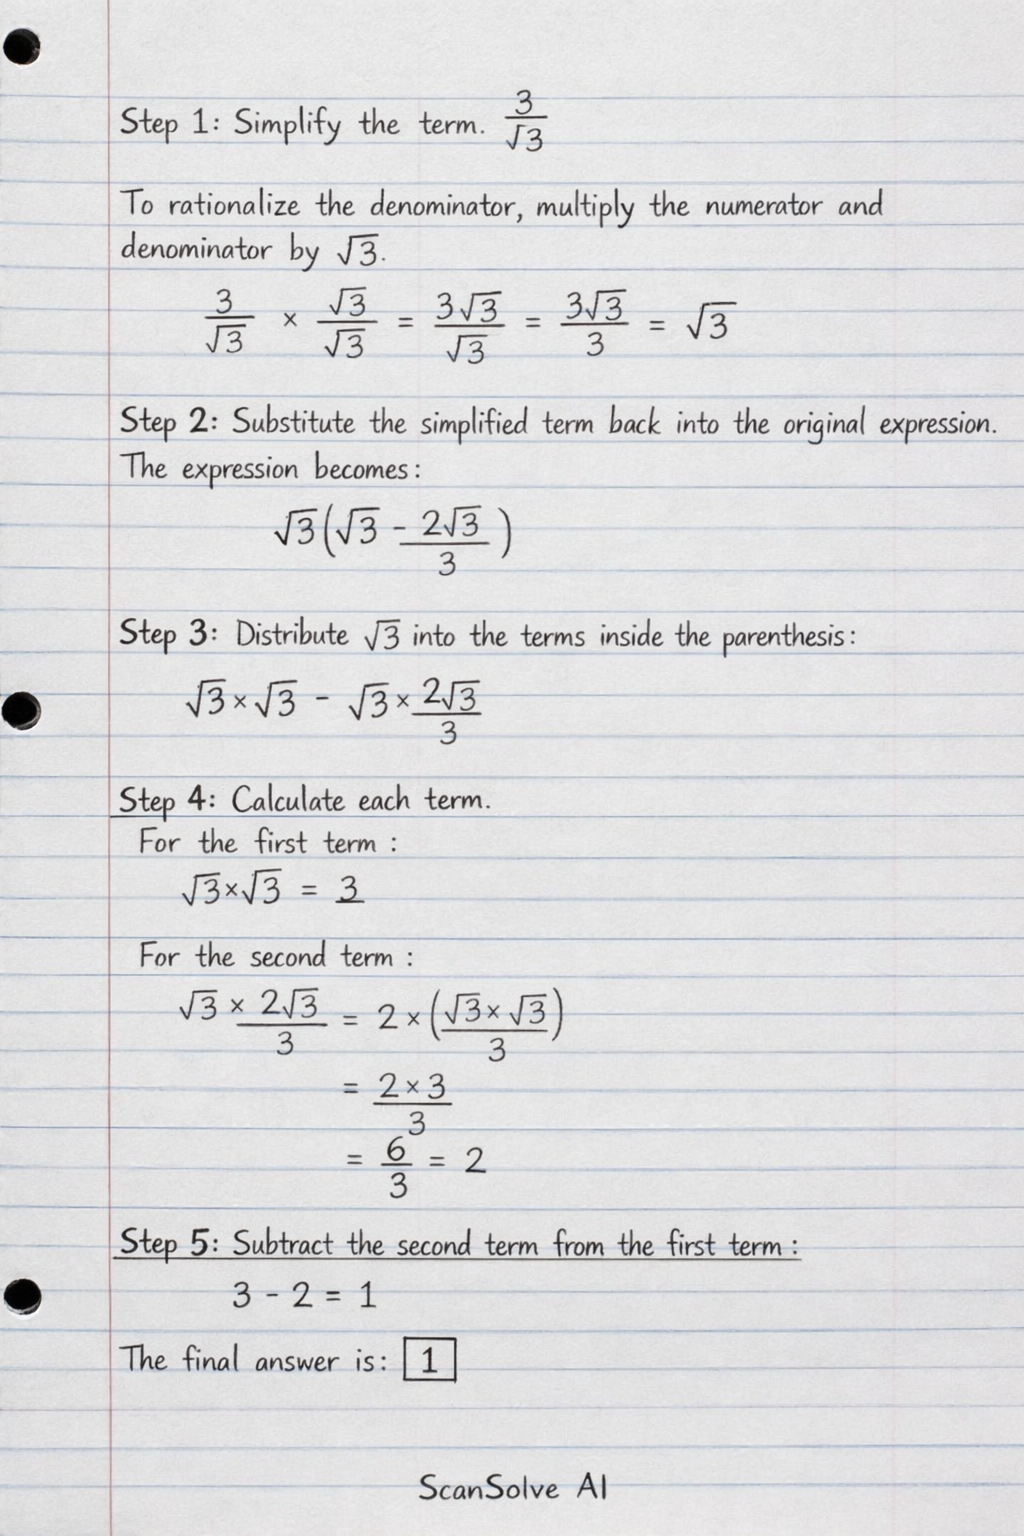 Step 1: Simplify the term. 3/√3
To rationalize the denominator, multiply the numerator and
denominator by √3.
3/√3 × √3/√3 = 3√3/√3 = 3√3/3 = √3
Step 2: Substitute the simplified term back into the original expression.
The expression becomes:
√3(√3 - 2√3/3)
Step 3: Distribute √3 into the terms inside the parenthesis:
√3 × √3 - √3 × 2√3/3
Step 4: Calculate each term.
For the first term :
√3 × √3 = 3
For the second term :
√3 × 2√3/3 = 2 × (√3 × √3/3)
= 2 × 3/3
= 6/3 = 2
Step 5: Subtract the second term from the first term :
3 - 2 = 1
The final answer is: 1
ScanSolve AI